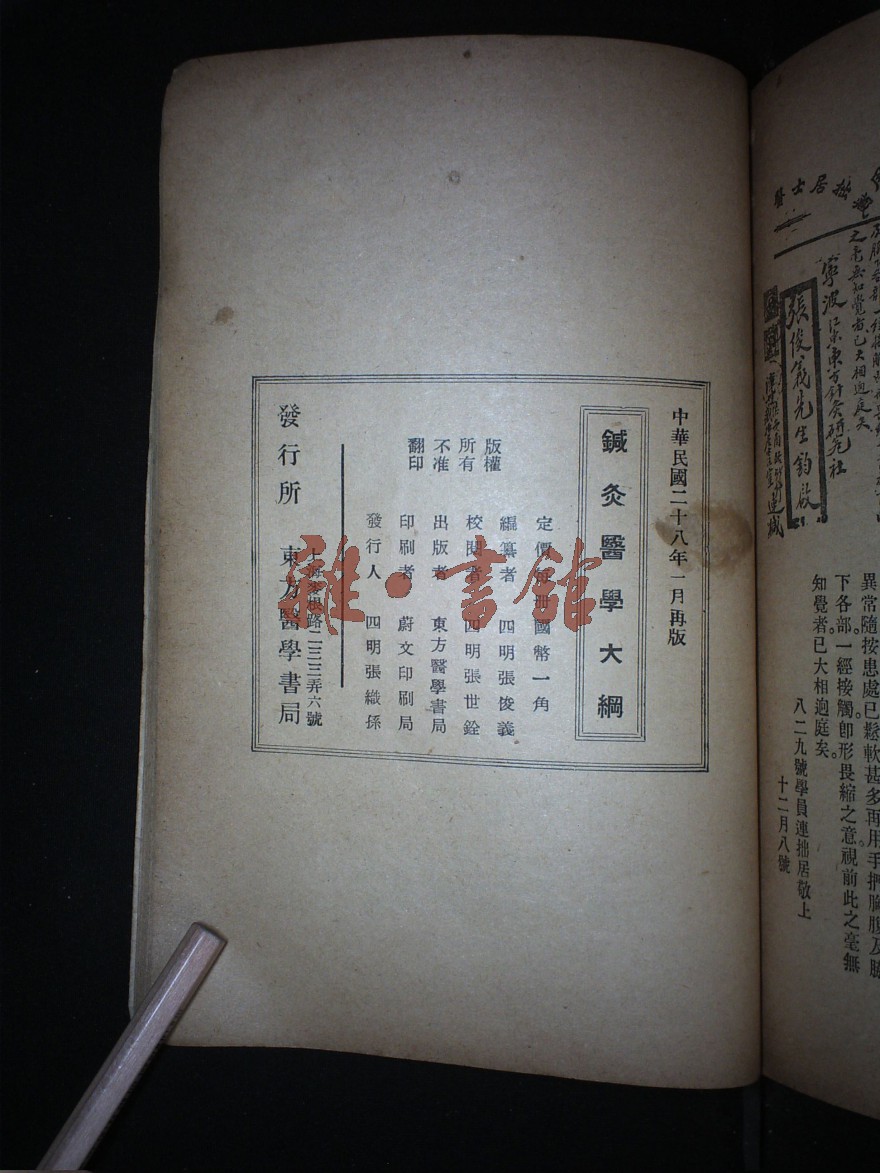 中華民國二十八年一月再版
鍼灸醫學大綱
版權所有不准翻印
定價每册國幣一角
編纂者 四明張俊義
校閱者 四明張世銓
出版者 東方醫學書局
印刷者 蔚文印刷局
發行人 四明張織孫
上海麥根路二三三弄六號
發行所 東方醫學書局
雜·書館
居士
之毫無知覺者已大相逈庭矣
寧波江東東方針灸研究社
張俊義先生鈞啟
異常隨按患處已鬆軟甚多再用手捫胸腹及脇
下各部一經接觸卽形畏縮之意視前此之毫無
知覺者已大相逈庭矣。
八二九號學員連拙居敬上
十二月八號